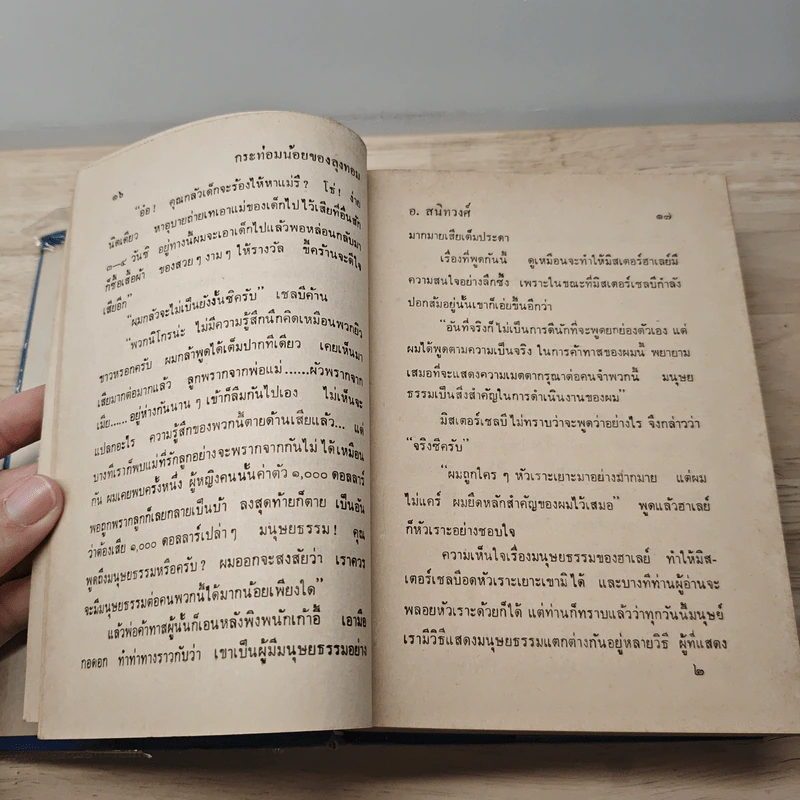 กระท่อมน้อยของลุงทอม
๑๖
"อ๋อ! คุณกลัวเด็กจะร้องไห้หาแม่รึ? โธ่! ง่าย
นิดเดียว หาอุบายถ่ายเทเอาแม่ของเด็กไปไว้เสียที่อื่นสัก
๓–๔ วันซี อยู่ทางนี้ผมจะเอาเด็กไปแล้วพอหล่อนกลับมา
ก็ซื้อเสื้อผ้า ของสวย ๆ งาม ๆ ให้รางวัล ขี้คร้านจะดีใจ
เสียอีก"
"ผมกลัวจะไม่เป็นยังงั้นซิครับ" เชลบีค้าน
"พวกนิโกรน่ะ ไม่มีความรู้สึกนึกคิดเหมือนพวกผิว
ขาวหรอกครับ ผมกล้าพูดได้เต็มปากทีเดียว เคยเห็นมา
เสียมากต่อมากแล้ว ลูกพรากจากพ่อแม่ ......ผัวพรากจาก
เมีย...... อยู่ห่างกันนาน ๆ เข้าก็ลืมกันไปเอง ไม่เห็นจะ
แปลกอะไร ความรู้สึกของพวกนี้ตายด้านเสียแล้ว... แต่
บางทีเราก็พบแม่ที่รักลูกอย่างจะพรากจากกันไม่ได้เหมือน
กัน ผมเคยพบครั้งหนึ่ง ผู้หญิงคนนั้นค่าตัว ๑,๐๐๐ ดอลลาร์
พอถูกพรากลูกก็เลยกลายเป็นบ้า ลงสุดท้ายก็ตาย เป็นอัน
ว่าต้องเสีย ๑,๐๐๐ ดอลลาร์เปล่า ๆ มนุษยธรรม! คุณ
พูดถึงมนุษยธรรมหรือครับ? ผมออกจะสงสัยว่า เราควร
จะมีมนุษยธรรมต่อคนพวกนี้ได้มากน้อยเพียงใด"
แล้วพ่อค้าทาสผู้นั้นก็เอนหลังพิงพนักเก้าอี้ เอามือ
กอดอก ทำท่าทางราวกับว่า เขาเป็นผู้มีมนุษยธรรมอย่าง
อ. สนิทวงศ์
๑๗
มากมายเสียเต็มประดา
เรื่องที่พูดกันนี้ ดูเหมือนจะทำให้มิสเตอร์ฮาเลย์มี
ความสนใจอย่างลึกซึ้ง เพราะในขณะที่มิสเตอร์เชลบีกำลัง
ปอกส้มอยู่นั้นเขาก็เอ่ยขึ้นอีกว่า
"อันที่จริงก็ไม่เป็นการดีนักที่จะพูดยกย่องตัวเอง แต่
ผมได้พูดตามความเป็นจริง ในการค้าทาสของผมนี้ พยายาม
เสมอที่จะแสดงความเมตตากรุณาต่อคนจำพวกนี้ มนุษย
ธรรมเป็นสิ่งสำคัญในการดำเนินงานของผม"
มิสเตอร์เชลบีไม่ทราบว่าจะพูดว่าอย่างไร จึงกล่าวว่า
"จริงซิครับ"
"ผมถูกใคร ๆ หัวเราะเยาะมาอย่างมากมาย แต่ผม
ไม่แคร์ ผมยึดหลักสำคัญของผมไว้เสมอ" พูดแล้วฮาเลย์
ก็หัวเราะอย่างชอบใจ
ความเห็นใจเรื่องมนุษยธรรมของฮาเลย์ ทำให้มิส-
เตอร์เชลบีอดหัวเราะเยาะเขามิได้ และบางทีท่านผู้อ่านจะ
พลอยหัวเราะด้วยก็ได้ แต่ท่านก็ทราบแล้วว่าทุกวันนี้มนุษย์
เรามีวิธีแสดงมนุษยธรรมแตกต่างกันอยู่หลายวิธี ผู้ที่แสดง
๒